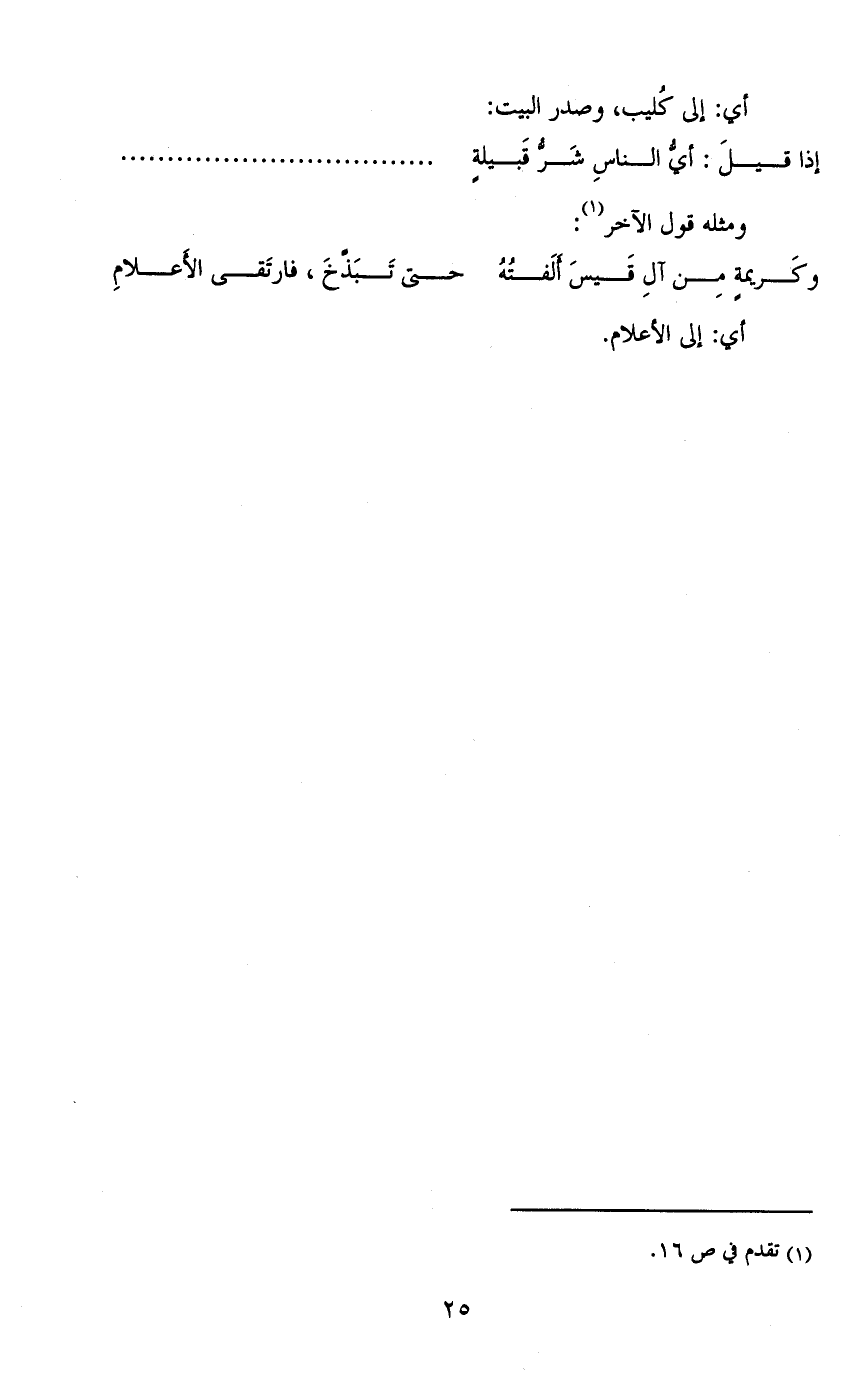 أي: إلى كُليب، وصدر البيت:
إذا قيلَ : أيُّ الناسِ شَرُّ قَبيلةٍ ..................................
ومثله قول الآخر(١):
وكَريمةٍ مِن آلِ قَيسَ أَلَفتُهُ حتى تَبَذَّخَ ، فارتَقى الأَعلامِ
أي: إلى الأعلام.
(١) تقدم في ص ١٦.
٢٥